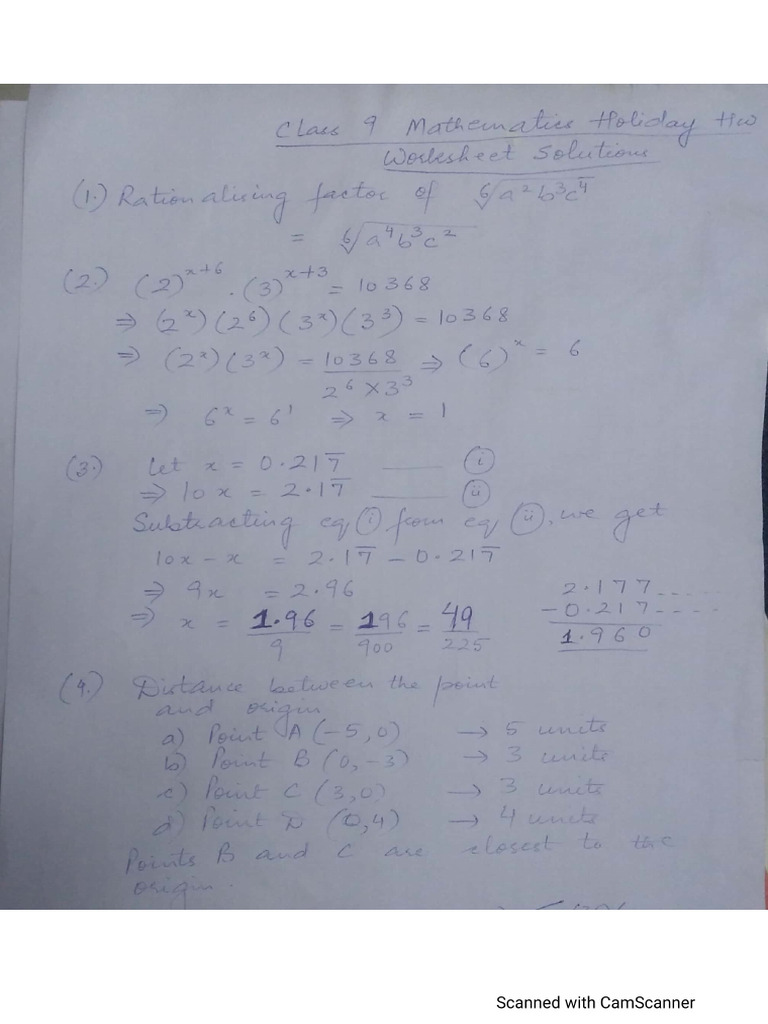 Class 9 Mathematics Holiday HW
Worksheet Solutions
(1.) Rationalising factor of ⁶√a²b³c⁴
= ⁶√a⁴b³c²
(2.) (2)^(x+6) . (3)^(x+3) = 10368
⇒ (2^x)(2⁶)(3^x)(3³) = 10368
⇒ (2^x)(3^x) = 10368/(2⁶×3³) ⇒ (6)^x = 6
⇒ 6^x = 6¹ ⇒ x = 1
(3.) Let x = 0.217̅ —— (i)
⇒ 10x = 2.17̅ —— (ii)
Subtracting eq (i) from eq (ii), we get
10x - x = 2.17̅ - 0.217̅
⇒ 9x = 2.96
⇒ x = 1.96/9 = 196/900 = 49/225
2.177----
-0.217----
1.960
(4.) Distance between the point
and origin
a) Point A (-5,0) → 5 units
b) Point B (0,-3) → 3 units
c) Point C (3,0) → 3 units
d) Point D (0,4) → 4 units
Points B and C are closest to the
origin.
Scanned with CamScanner